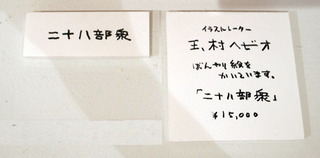 二十八部衆
イラストレーター
王、村ヘゼオ
ぼんやり絵を
かいています。
「二十八部衆」
¥15,000